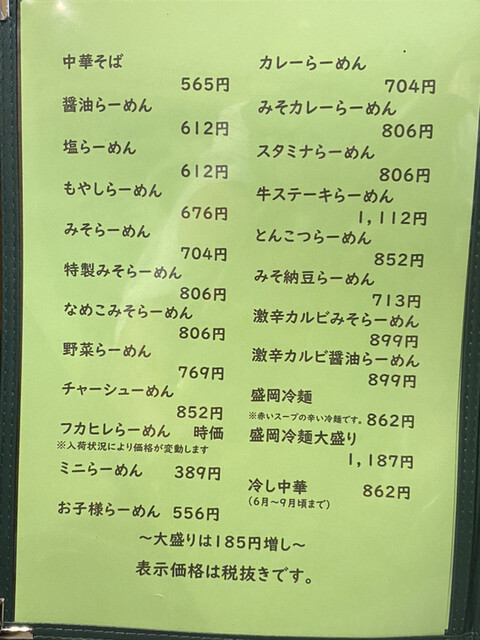 中華そば
565円
醤油らーめん
612円
塩らーめん
612円
もやしらーめん
676円
みそらーめん
704円
特製みそらーめん
806円
なめこみそらーめん
806円
野菜らーめん
769円
チャーシューめん
852円
フカヒレらーめん 時価
※入荷状況により価格が変動します
ミニらーめん 389円
お子様らーめん 556円
カレーらーめん
704円
みそカレーらーめん
806円
スタミナらーめん
806円
牛ステーキらーめん
1,112円
とんこつらーめん
852円
みそ納豆らーめん
713円
激辛カルビみそらーめん
899円
激辛カルビ醤油らーめん
899円
盛岡冷麺
※赤いスープの辛い冷麺です。 862円
盛岡冷麺大盛り
1,187円
冷し中華 862円
(6月~9月頃まで)
~大盛りは185円増し~
表示価格は税抜きです。